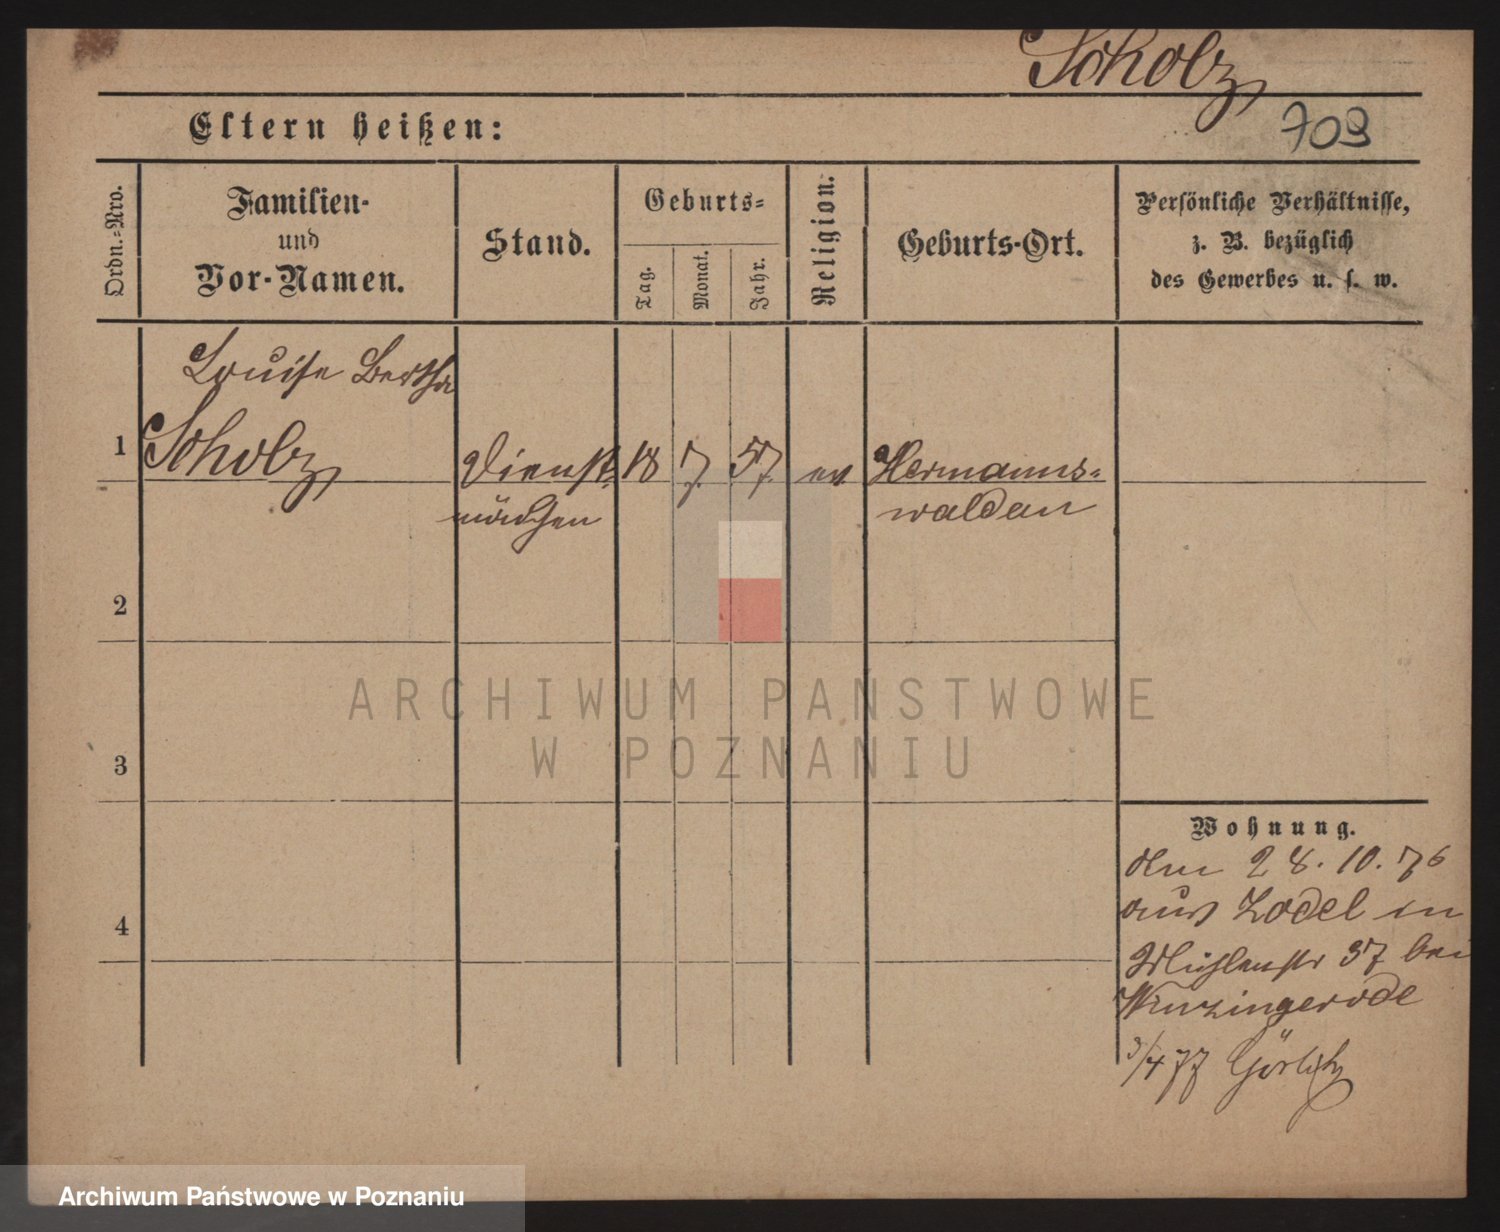 Scholz
709
Eltern heißen:
Ordn.-Nro.
Familien-
und
Vor-Namen.
Stand.
Geburts-
Tag.
Monat.
Jahr.
Religion.
Geburts-Ort.
Persönliche Verhältnisse,
z. B. bezüglich
des Gewerbes u. s. w.
Louise Bertha
1 Scholz Dienst- 18 7. 57. ev Hermanns-
mädchen waldau
2
3
4
Wohnung.
den 28. 10. 76
aus Zodel in
Mühlenstr 37 bei
Winzingerode
3/4 77 Görlitz
ARCHIWUM PAŃSTWOWE
W POZNANIU
Archiwum Państwowe w Poznaniu